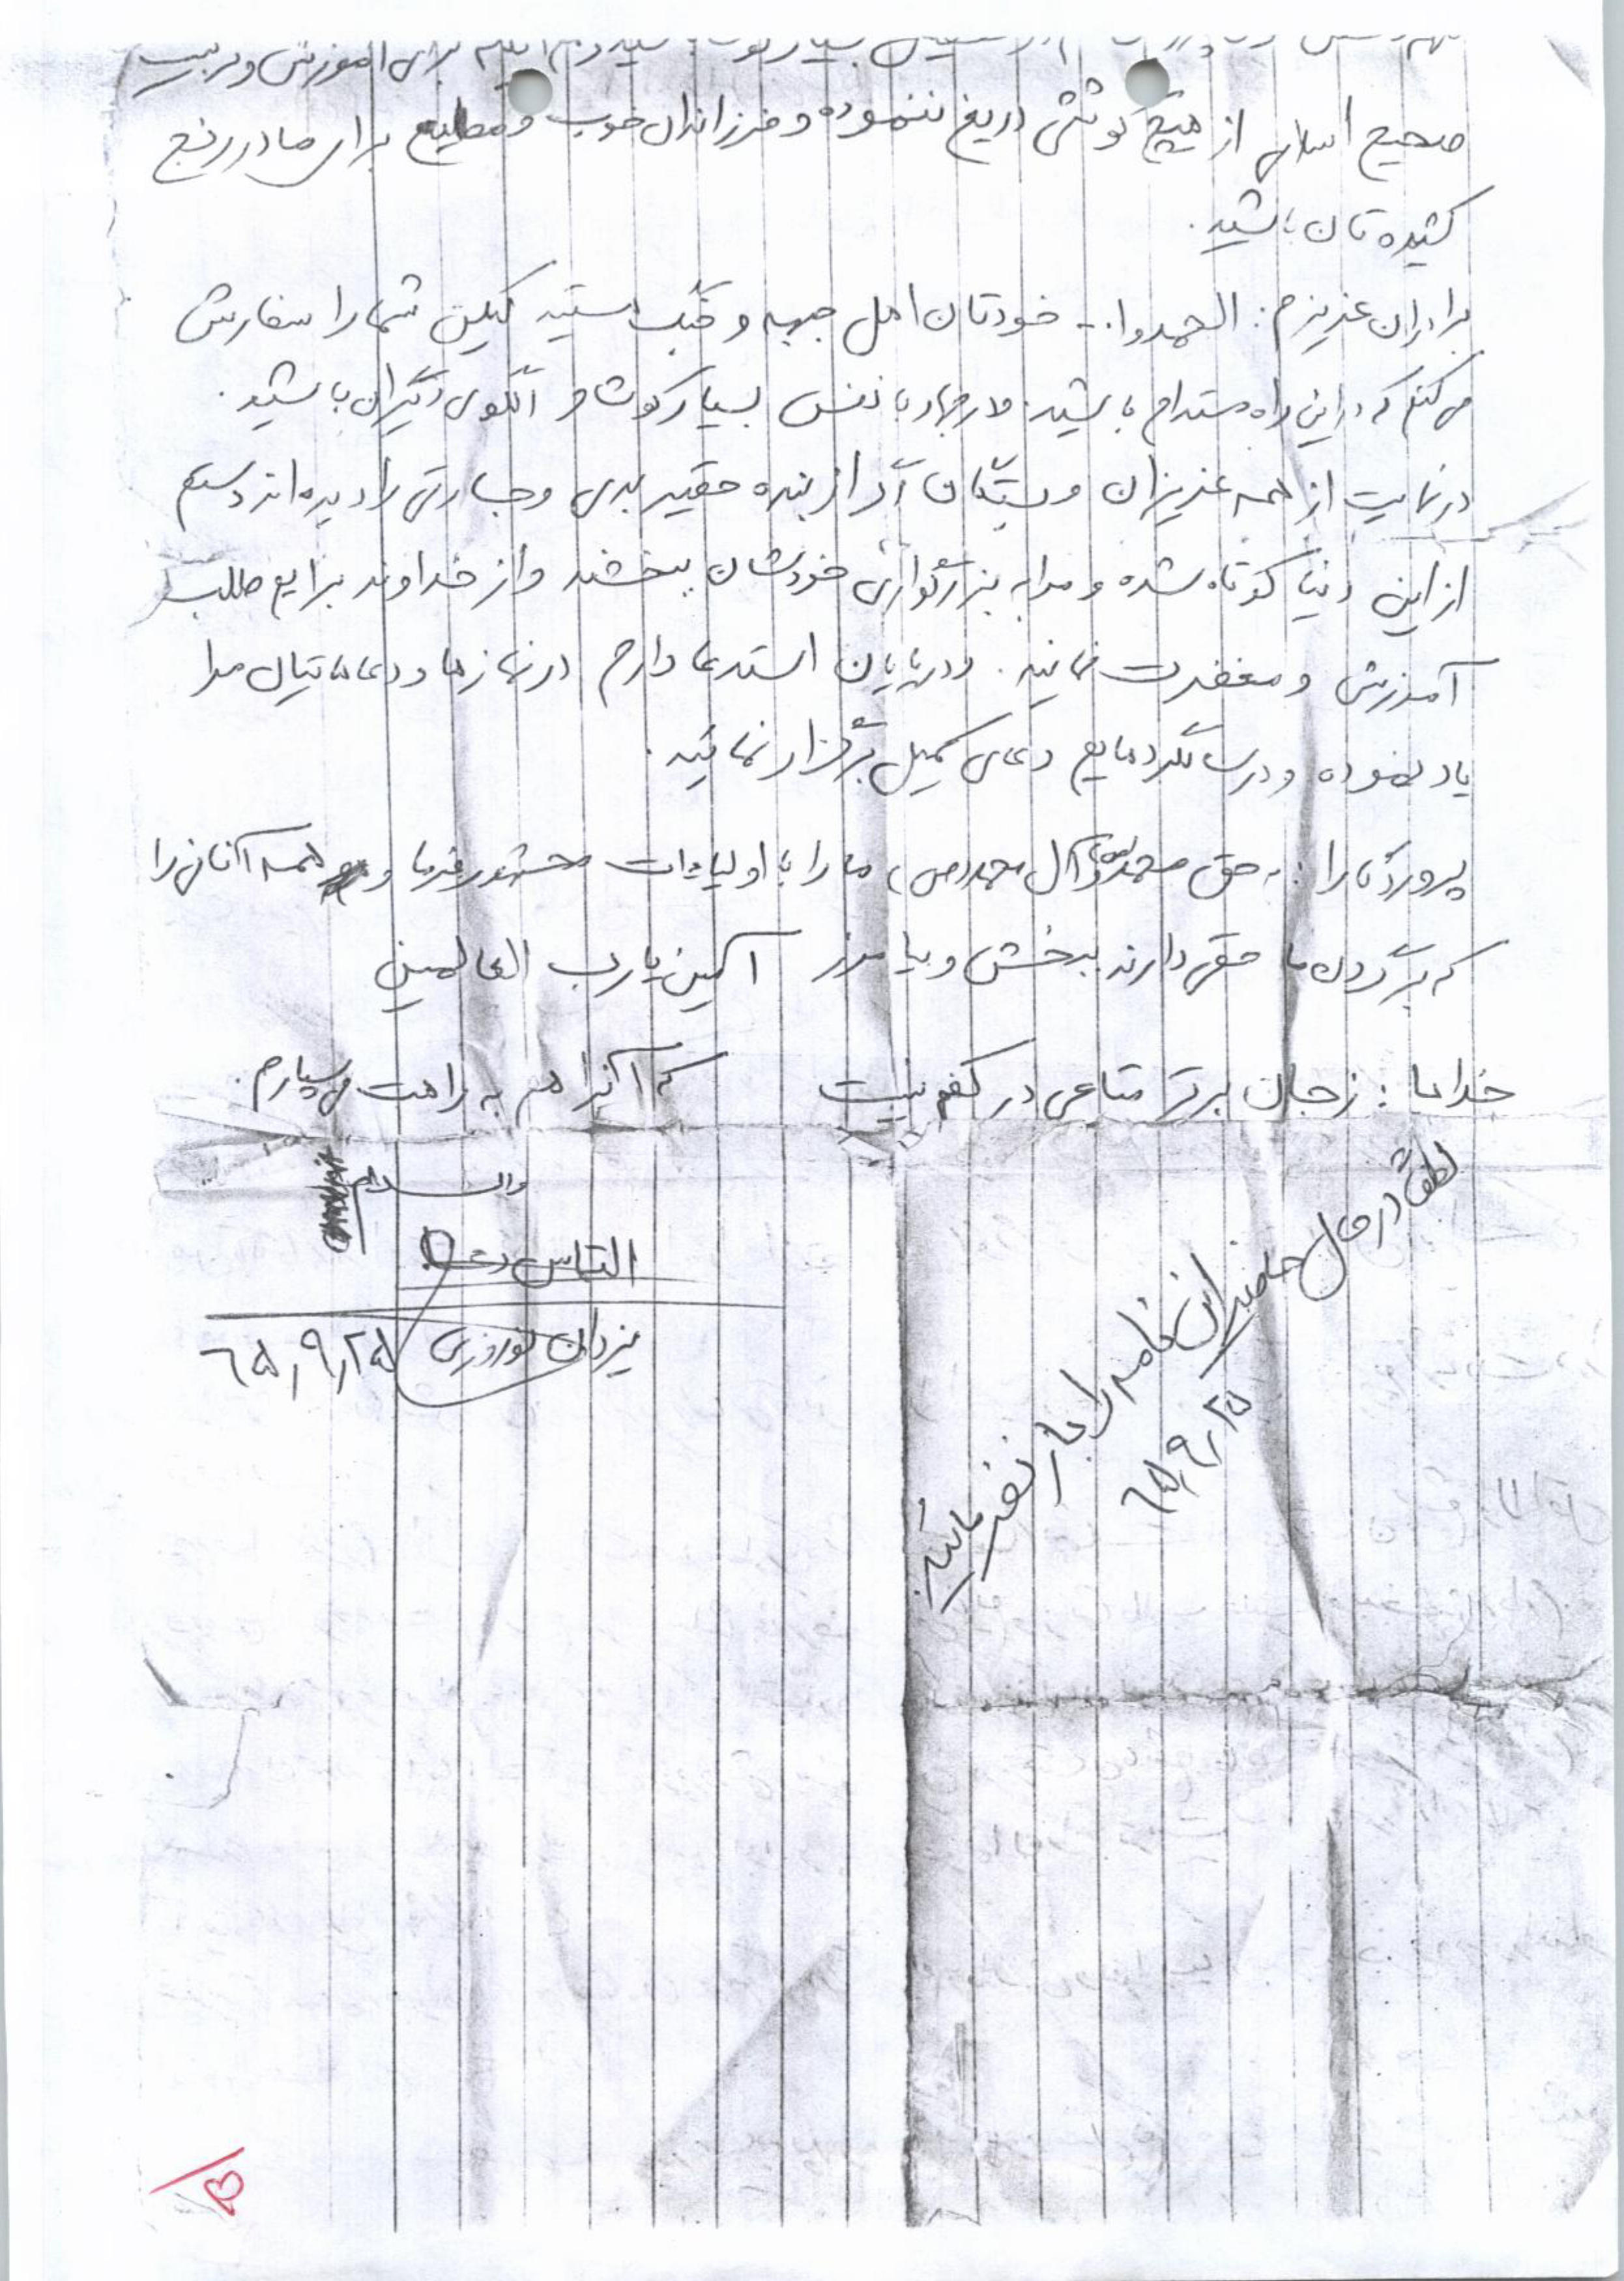 بسیار خوب باشید و برای آموزش و تربیت
صحیح اسلامی از هیچ کوششی دریغ ننموده و فرزاندان خوب و مطیع برای مادر رنج
کشیده تان باشید.
برادران عزیزم: الحمدوا... خودتان اهل جبهه و جنگ هستید لیکن شما را سفارش
می کنم که در این راه مستدام باشید. و در جهاد با نفس بسیار کوشا و الگوی دیگران باشید.
در نهایت از همه عزیزان و بستگان اگر از بنده حقیر بدی و جسارتی را دیده اند دستم
از این دنیا کوتاه شده و مرا به بزرگواری خودشان ببخشند و از خداوند برایم طلب
آمرزش و مغفرت نمائید. و در پایان استدعا دارم در نمازها و دعاهاتیان مرا
یاد نموده و در سالگردهایم دعای کمیل برگزار نمائید.
پروردگارا: به حق محمد و آل محمد (ص) ما را با اولیاءات محشور فرما و همه آنانی را
که بر گردن ما حقی دارند ببخش و بیامرز آمین یا رب العالمین
خدایا: ز جان برتر متاعی در کفم نیست که آنرا هم به راهت می سپارم.
والسلام
التماس دعا
یزدان نوروزی ٦٥/٩/٢٥
لطفاً در حال حاضر این نامه را باز نفرمائید.
٦٥/٩/٢٥